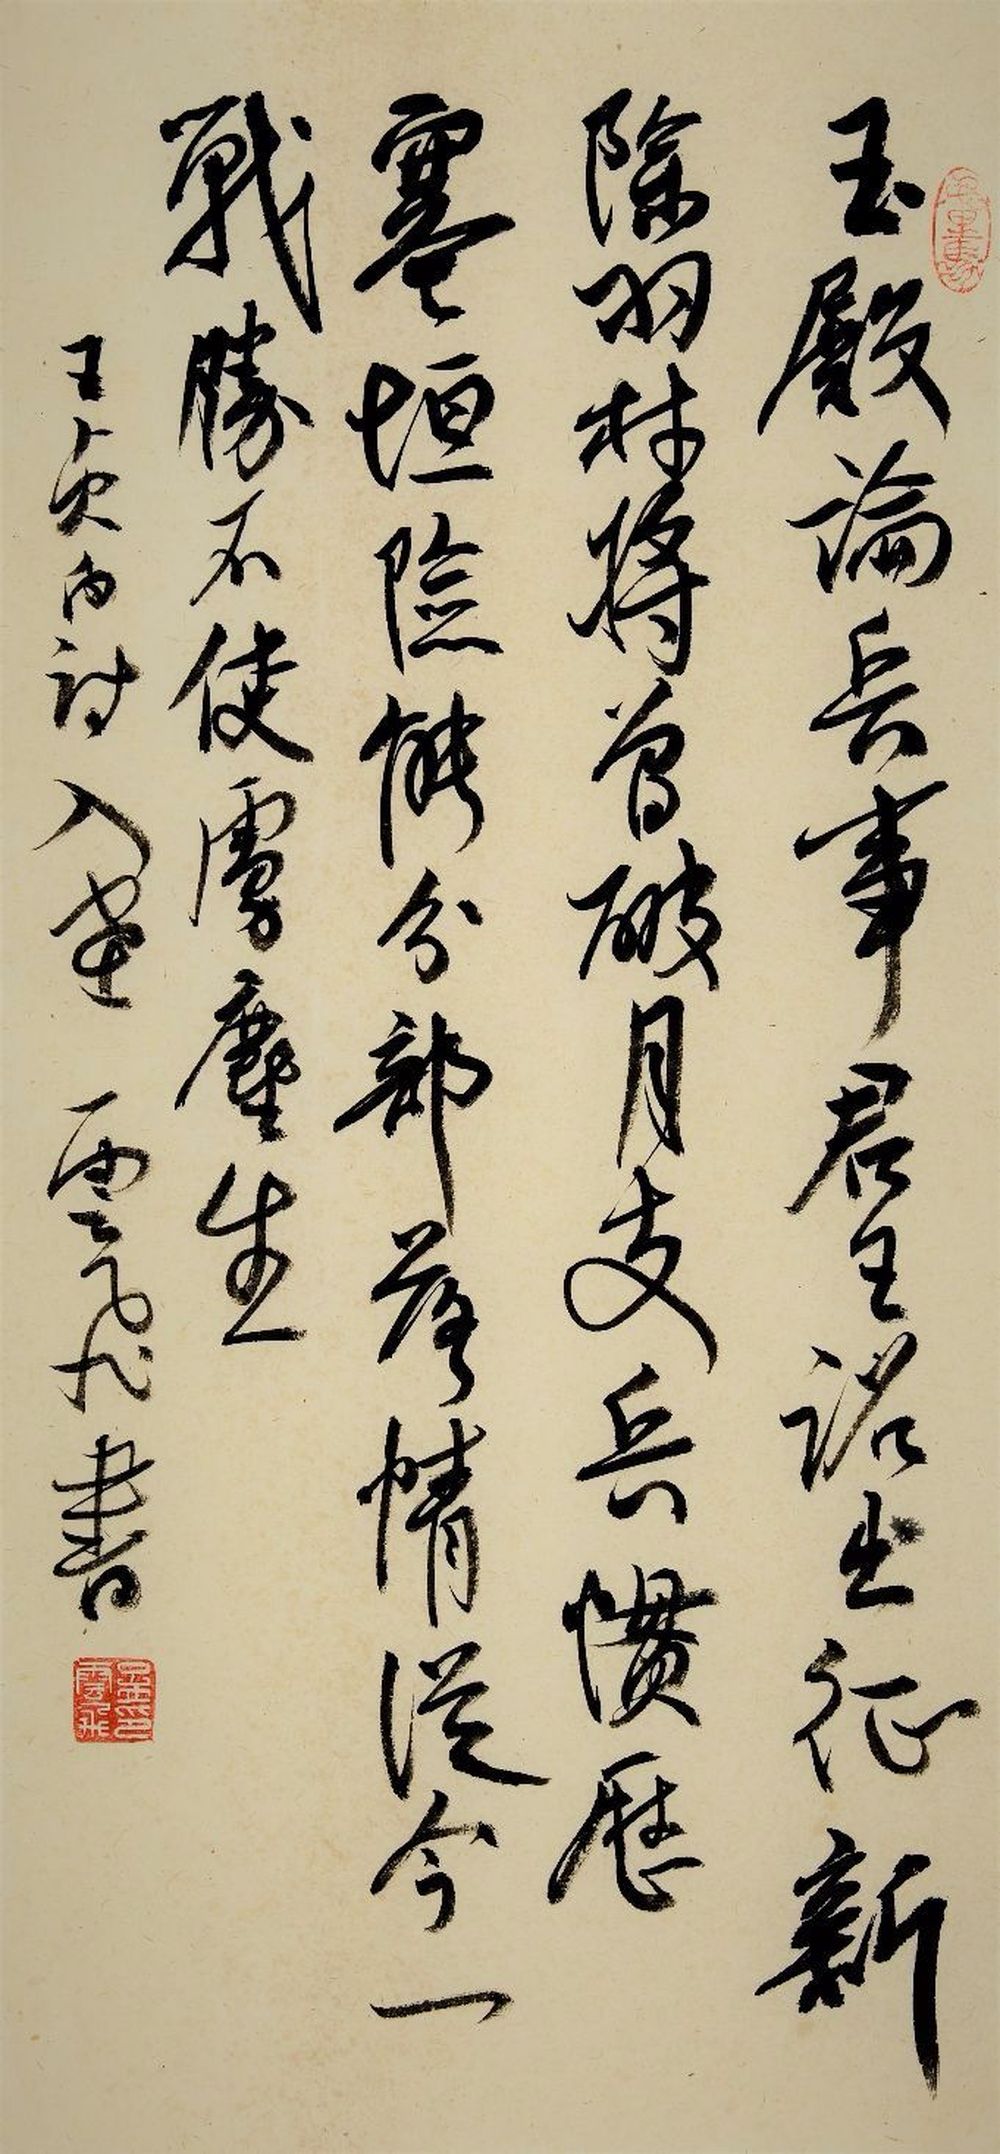 玉殿論兵事君王詔出征新
除羽林將曾破月支兵慣歷
塞垣險能分部落情從今一
戰勝不使虜塵生
王貞白詩入塞 雲飛書